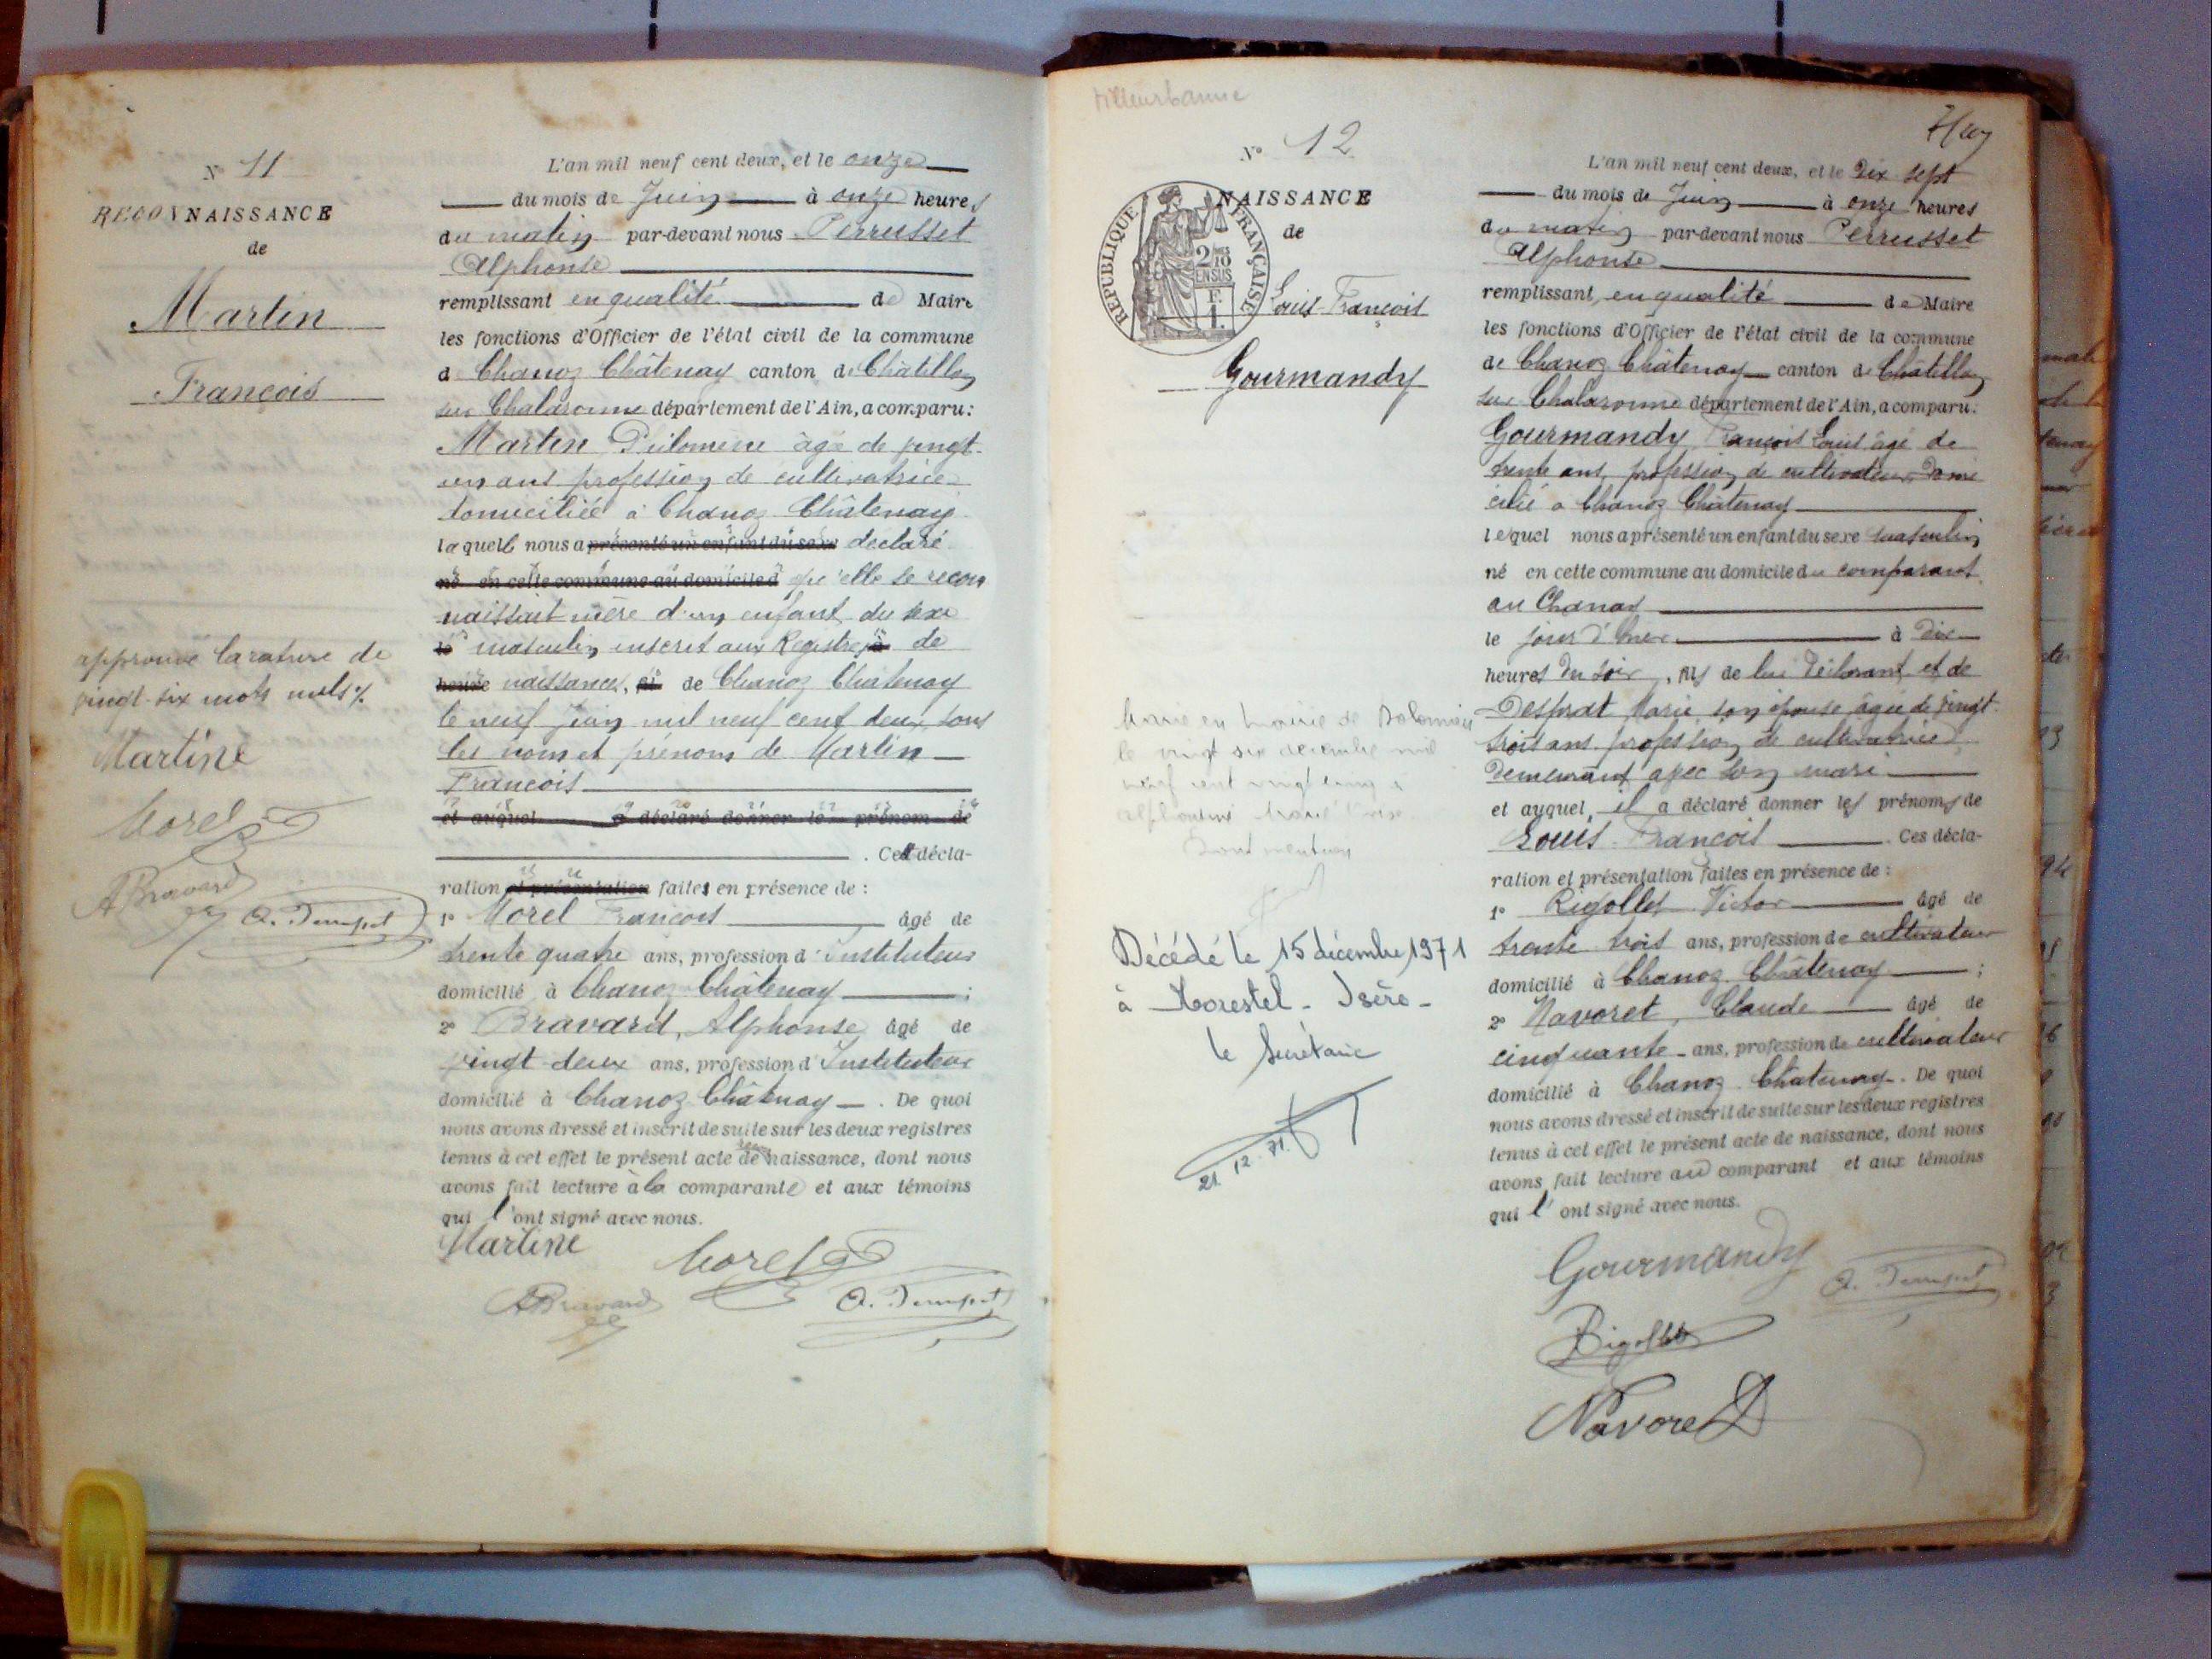 N° 11
RECONNAISSANCE
de
Martin
François
approuvé la rature de
vingt-six mots nuls
Martine
Morel
ABravard
L'an mil neuf cent deux, et le onze
du mois de Juin à onze heures
du matin par-devant nous Perrusset
Alphonse
remplissant en qualité de Maire
les fonctions d'Officier de l'état civil de la commune
de Chanoz Châtenay canton de Châtillon
sur Chalaronne département de l'Ain, a comparu:
Martin Philomène âgée de vingt-
un ans profession de cultivatrice
domiciliée à Chanoz Châtenay
laquelle nous a présenté un enfant du sexe déclaré
né en cette commune au domicile d qu'elle se recon
naissait mère d'un enfant du sexe
le masculin inscrit aux Registres à de
heure naissances, fil de Chanoz Châtenay
le neuf Juin mil neuf cent deux sous
les nom et prénoms de Martin
François
et auquel a déclaré donner le prénom de
. Cett décla-
ration et présentation faites en présence de :
1° Morel François âgé de
trente quatre ans, profession d'Instituteur
domicilié à Chanoz Châtenay ;
2° Bravard, Alphonse âgé de
vingt deux ans, profession d'Instituteur
domicilié à Chanoz Châtenay . De quoi
nous avons dressé et inscrit de suite sur les deux registres
tenus à cet effet le présent acte de naissance, dont nous
avons fait lecture à la comparante et aux témoins
qui l'ont signé avec nous.
Martine
Morel
ABravard
Villeurbanne
N° 12
NAISSANCE
de
RÉPUBLIQUE FRANÇAISE
2/10
EN SUS
F.
1.
Louis-François
Gourmandy
le vingt six décembre mil
neuf cent vingt cinq
Décédé le 15 décembre 1971
à Morestel - Isère -
le Secrétaire
21.12.71.
L'an mil neuf cent deux, et le Dix sept
du mois de Juin à onze heures
du matin par-devant nous Perrusset
Alphonse
remplissant en qualité de Maire
les fonctions d'Officier de l'état civil de la commune
de Chanoz Châtenay canton de Châtillon
sur Chalaronne département de l'Ain, a comparu:
Gourmandy François Louis âgé de
trente ans, profession de cultivateur Domi
cilié à Chanoz Châtenay
lequel nous a présenté un enfant du sexe masculin
né en cette commune au domicile du comparant
au Chanay
le jour d'hier à Dix
heures du soir, fils de lui déclarant et de
Desprat Marie son épouse âgée de vingt-
trois ans profession de cultivatrice
demeurant avec son mari
et auquel il a déclaré donner les prénoms de
Louis-François . Ces décla-
ration et présentation faites en présence de :
1° Rigollet Victor âgé de
trente trois ans, profession de cultivateur
domicilié à Chanoz Châtenay ;
2° Navoret, Claude âgé de
cinquante ans, profession de cultivateur
domicilié à Chanoz Châtenay. De quoi
nous avons dressé et inscrit de suite sur les deux registres
tenus à cet effet le présent acte de naissance, dont nous
avons fait lecture au comparant et aux témoins
qui l'ont signé avec nous.
Gourmandy
Rigollet
Navoret